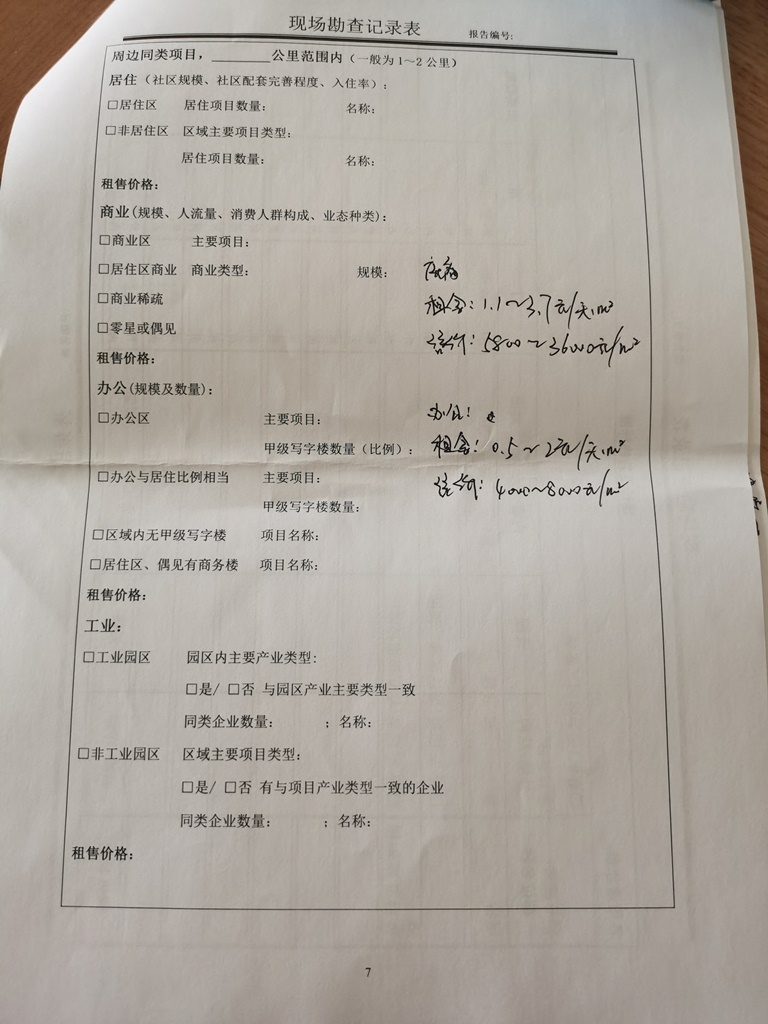 现场勘查记录表 报告编号:
周边同类项目，________公里范围内（一般为1～2公里）
居住（社区规模、社区配套完善程度、入住率）：
□居住区 居住项目数量： 名称：
□非居住区 区域主要项目类型：
居住项目数量： 名称：
租售价格：
商业(规模、人流量、消费人群构成、业态种类)：
□商业区 主要项目：
□居住区商业 商业类型： 规模：
□商业稀疏 租金：1.1～3.7元/天.m²
□零星或偶见 售价：5800～36000元/m²
租售价格：
办公(规模及数量)：
□办公区 主要项目： 办公：
甲级写字楼数量（比例）： 租金：0.5～2元/天.m²
□办公与居住比例相当 主要项目： 售价：4000～8000元/m²
甲级写字楼数量：
□区域内无甲级写字楼 项目名称：
□居住区、偶见有商务楼 项目名称：
租售价格：
工业：
□工业园区 园区内主要产业类型:
□是/ □否 与园区产业主要类型一致
同类企业数量： ；名称：
□非工业园区 区域主要项目类型：
□是/ □否 有与项目产业类型一致的企业
同类企业数量： ；名称：
租售价格：
7